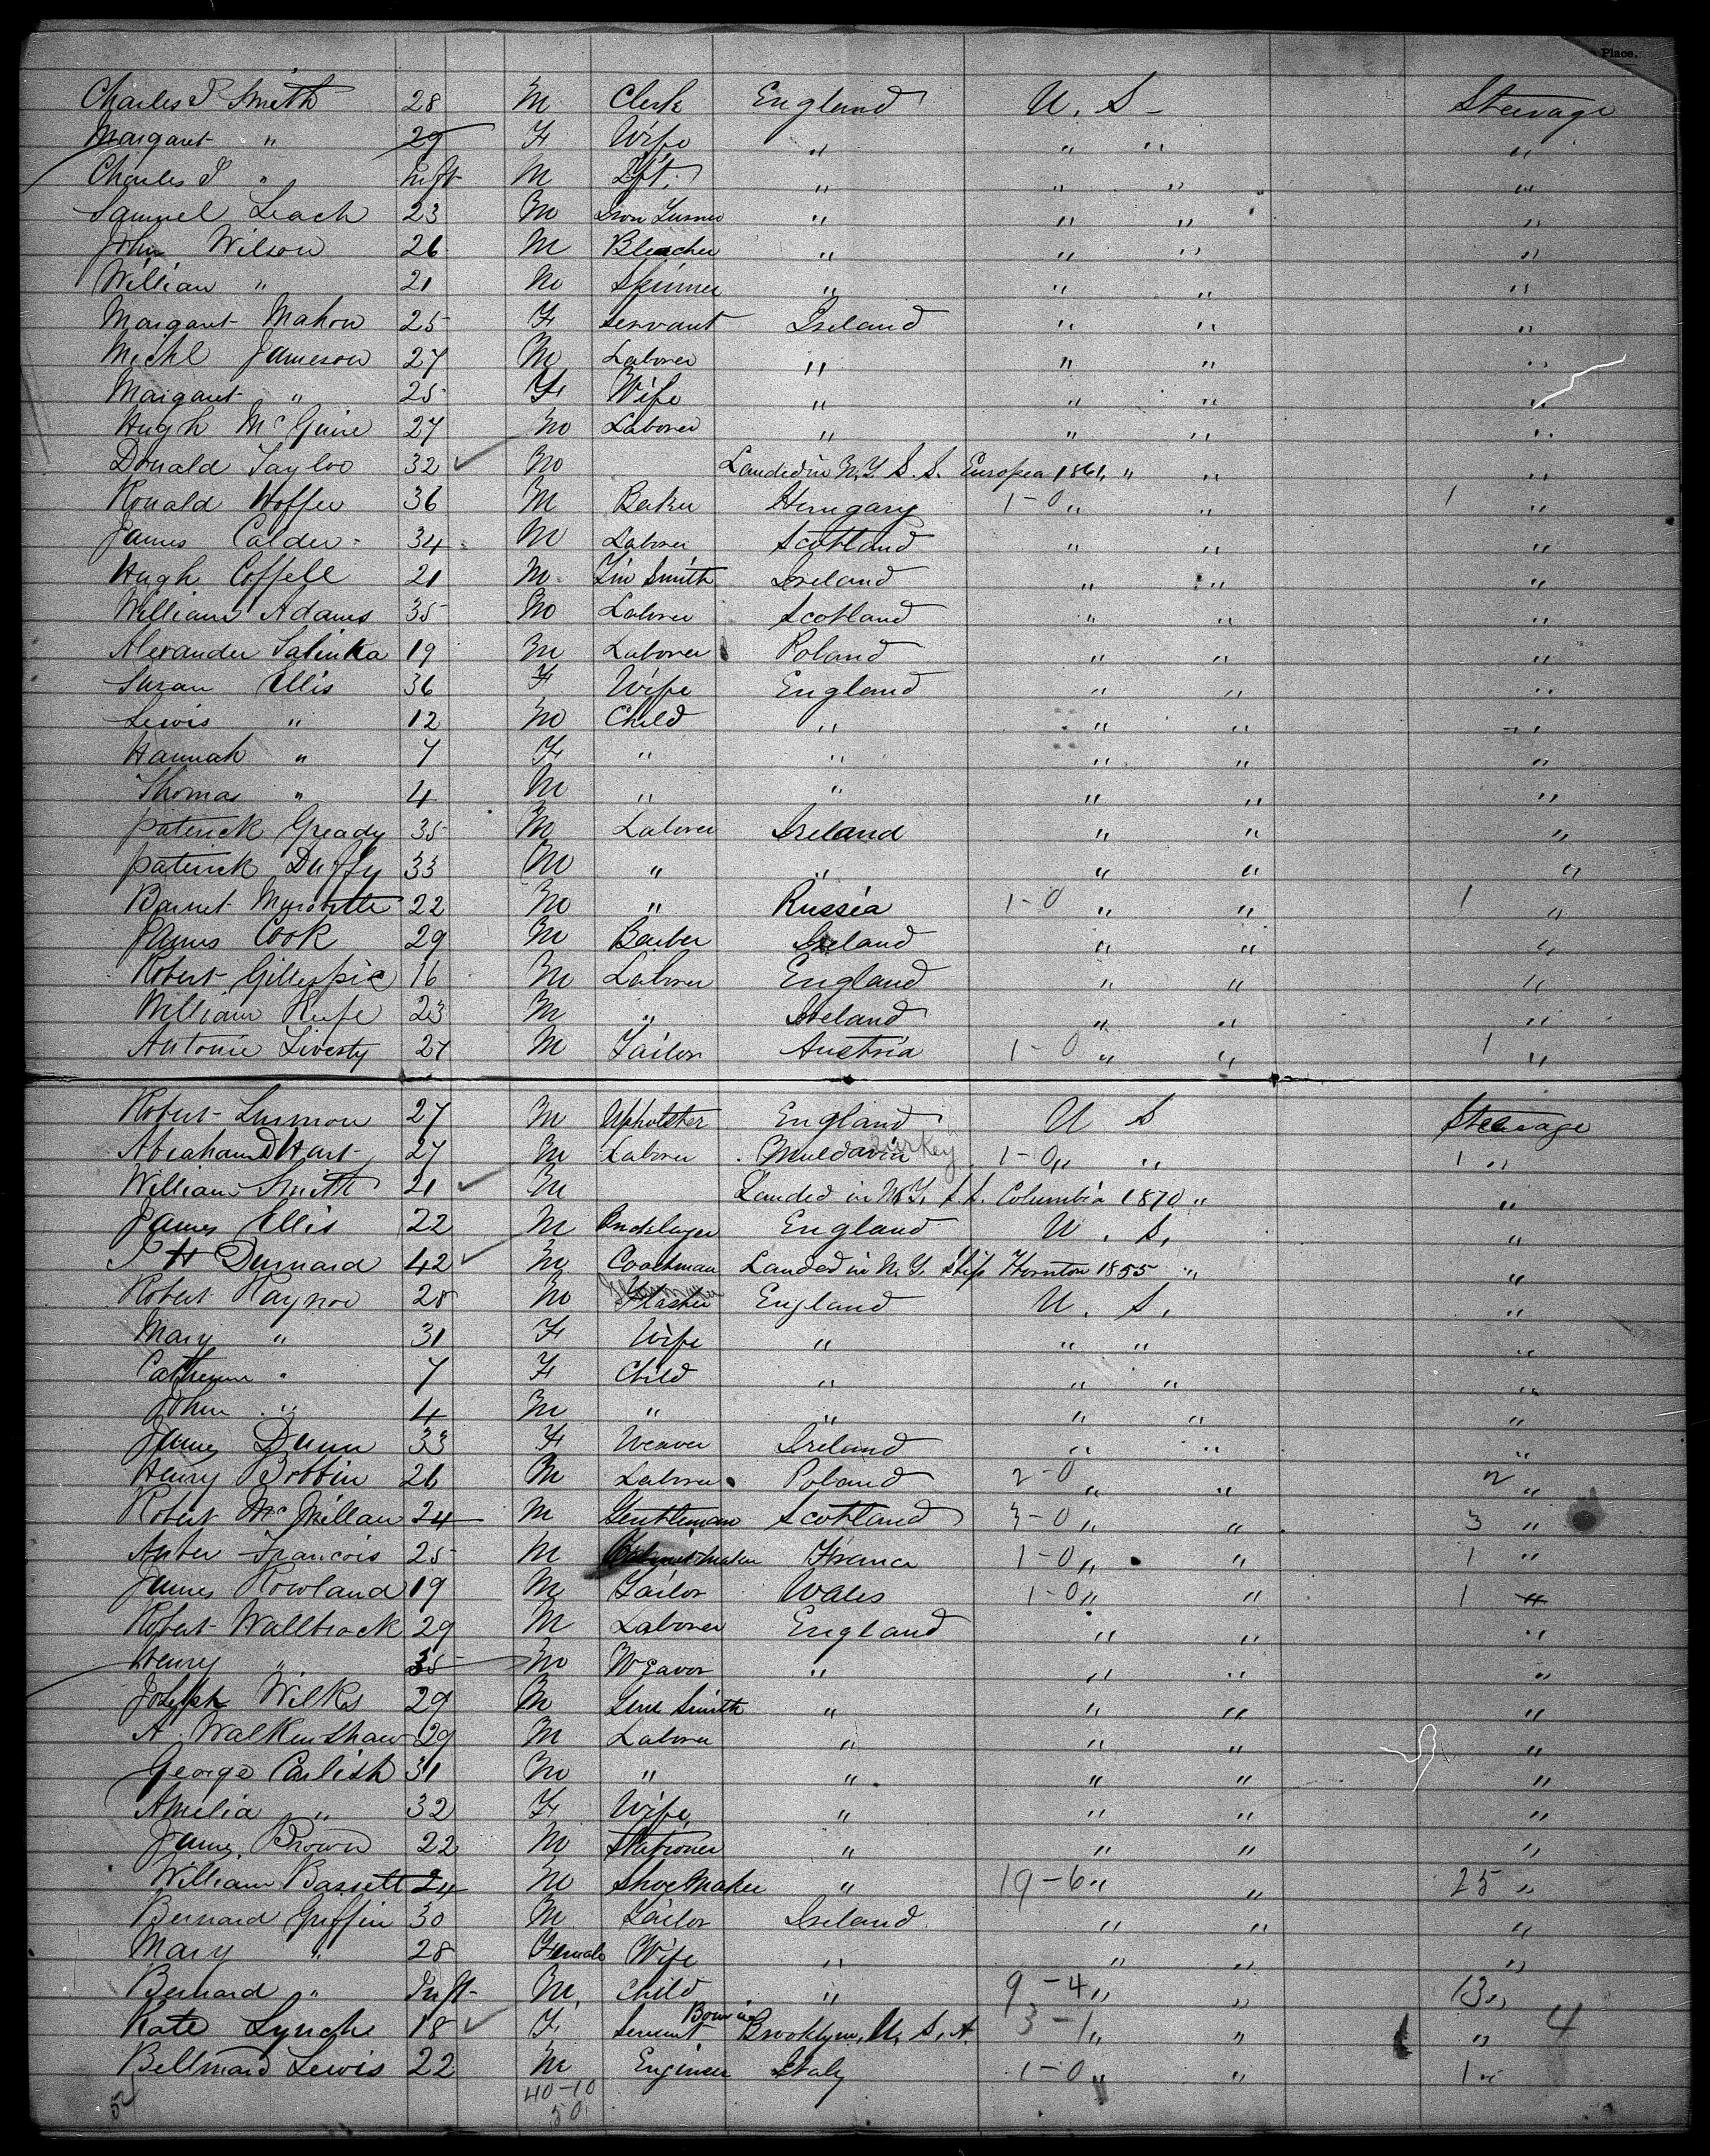 Place.
Charles J Smith 28 M Clerk England U. S - Steerage
Margaret " 29 F Wife " " " "
Charles J " Inft M Inft " " " "
Samuel Leach 23 M Iron Turner " " " "
John Wilson 26 M Bleacher " " " "
William " 21 M Spinner " " " "
Margaret Mahon 25 F Servant Ireland " " "
Michl Jameson 27 M Laborer " " " "
Margaret " 25 F Wife " " " "
Hugh McGuire 27 M Laborer " " " "
Donald Taylor 32 ✓ M Landed in N.Y. S. S. Europea 1861, " " "
Ronald Hoffer 36 M Baker Hungary 1-0 " " 1 "
James Calder 34 M Laborer Scotland " " "
Hugh Coffell 21 M Tin Smith Ireland " " "
William Adams 35 M Laborer Scotland " " "
Alexander Salinka 19 M Laborer Poland " " "
Susan Ellis 36 F Wife England " " "
Lewis " 12 M Child " " " "
Hannah " 7 F " " " " "
Thomas " 4 M " " " " "
Patrick Gready 35 M Laborer Ireland " " "
Patrick Duffy 33 M " " " " "
Barnet 22 M " Russia 1-0 " " 1 "
James Cook 29 M Barber Ireland " " "
Robert Gillespie 16 M Laborer England " " "
William Keefe 23 M " Ireland " " "
Antonie Liversty 27 M Tailor Austria 1-0 " " 1 "
Robert Lunmon 27 M Upholster England U S Steerage
Abraham D Hart 27 M Laborer Muldavia Turkey 1-0 " " 1 "
William Smith 21 ✓ M Landed in N.Y. S.S. Columbia 1870 " "
James Ellis 22 M Bricklayer England U. S. "
J H Dennard 42 ✓ M Coachman Landed in N.Y. Ship Hornton 1855 " "
Robert Raynor 28 M England U. S. "
Mary " 31 F Wife " " " "
Catherine " 7 F Child " " " "
John " 4 M " " " " "
James Dunn 33 F Weaver Ireland " " "
Henry Bobbin 26 M Laborer Poland 2-0 " " 2 "
Robert McMillan 24 M Gentleman Scotland 3-0 " " 3 "
Anter Francois 25 M Cabinet Maker France 1-0 " " 1 "
James Rowland 19 M Tailor Wales 1-0 " " 1 "
Robert Wallbrock 29 M Laborer England " " "
Henry " 35 M Weavor " " " "
Joseph Wilks 29 M Smith " " " "
A. Walkenshaw 29 M Laborer " " " "
George Carlish 31 M " " " " "
Amelia " 32 F Wife " " " "
James Brown 22 M Stationer " " " "
William Bassett 24 M Shoe Maker " 19-6 " " 25 "
Bernard Griffin 30 M Tailor Ireland " " "
Mary " 28 Female Wife " " " "
Bernard " Inft M Child " 9-4 " " 13 "
Kate Lynch 18 ✓ F Servant Born in Brooklyn, U, S, A 3-1 " " " 4
Bellmard Lewis 22 M Engineer Italy 1-0 " " 1 "
52 40-10
50